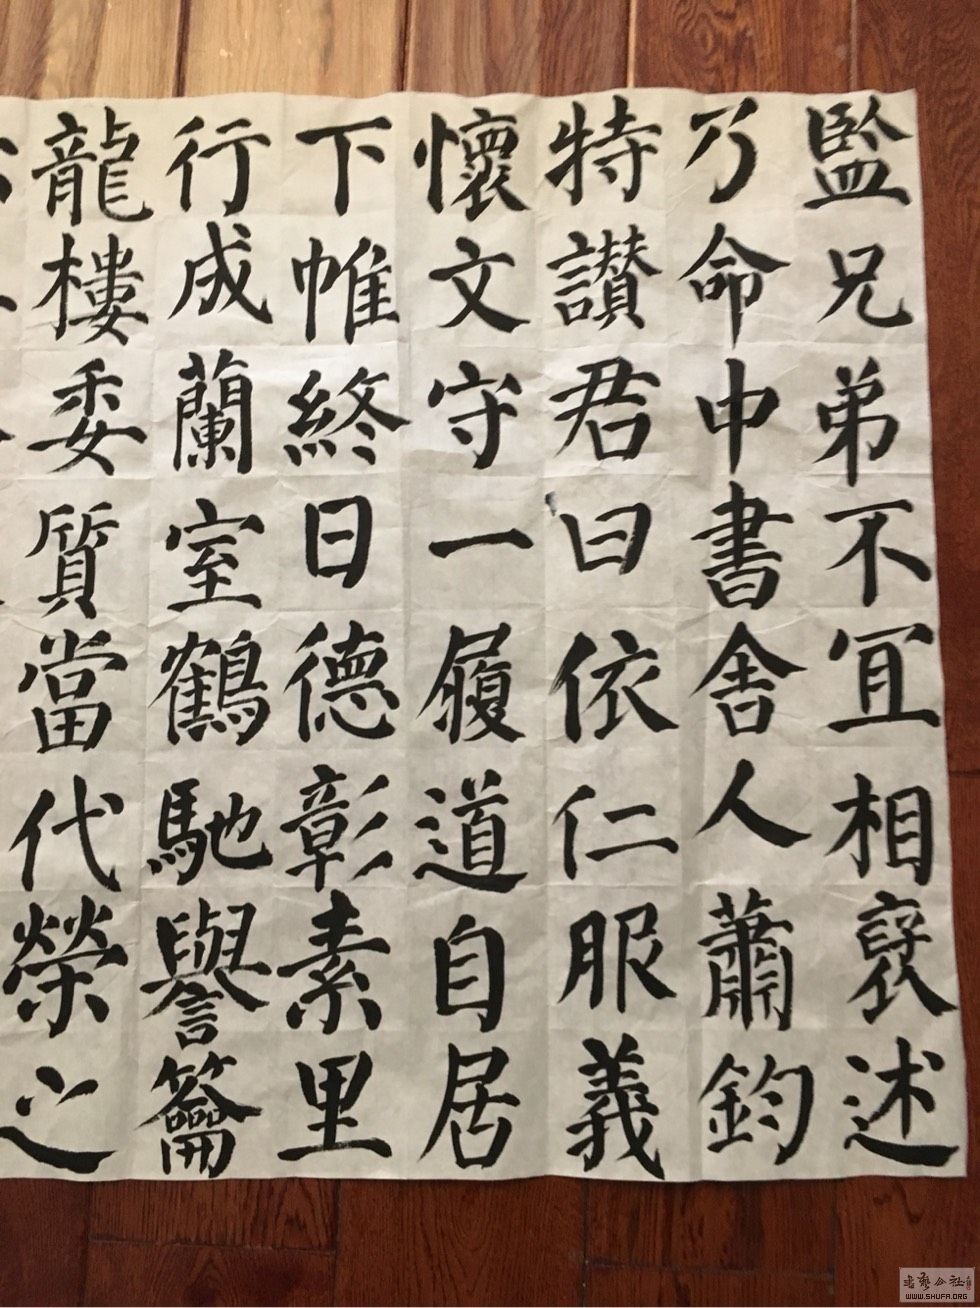 監兄弟不宜相褒述
乃命中書舍人蕭鈞
特讃君曰依仁服義
懷文守一履道自居
下帷終日德彰素里
行成蘭室鶴馳譽龠
龍樓委質當代榮之
WWW.SHUFA.ORG